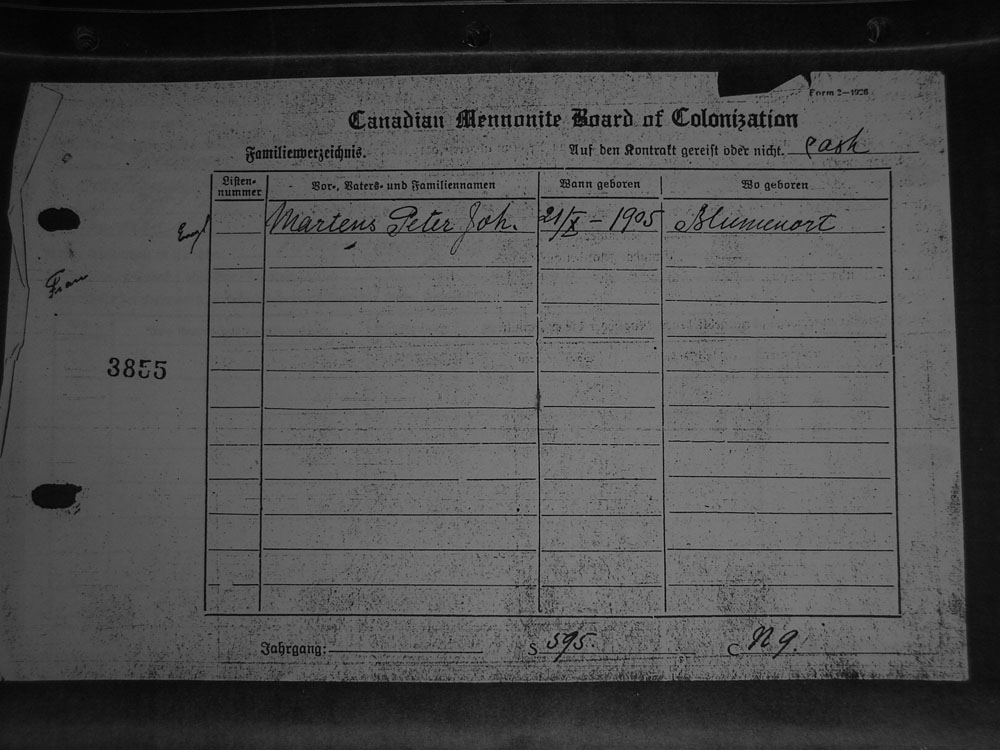 Form 2—1926
Canadian Mennonite Board of Colonization
Familienverzeichnis. Auf den Kontrakt gereist oder nicht. Cash
Listen-nummer Vor-, Vaters- und Familiennamen Wann geboren Wo geboren
Martens Peter Joh. 21/X - 1905 Blumenort
Frau
3855
Jahrgang: S 595. C N9.